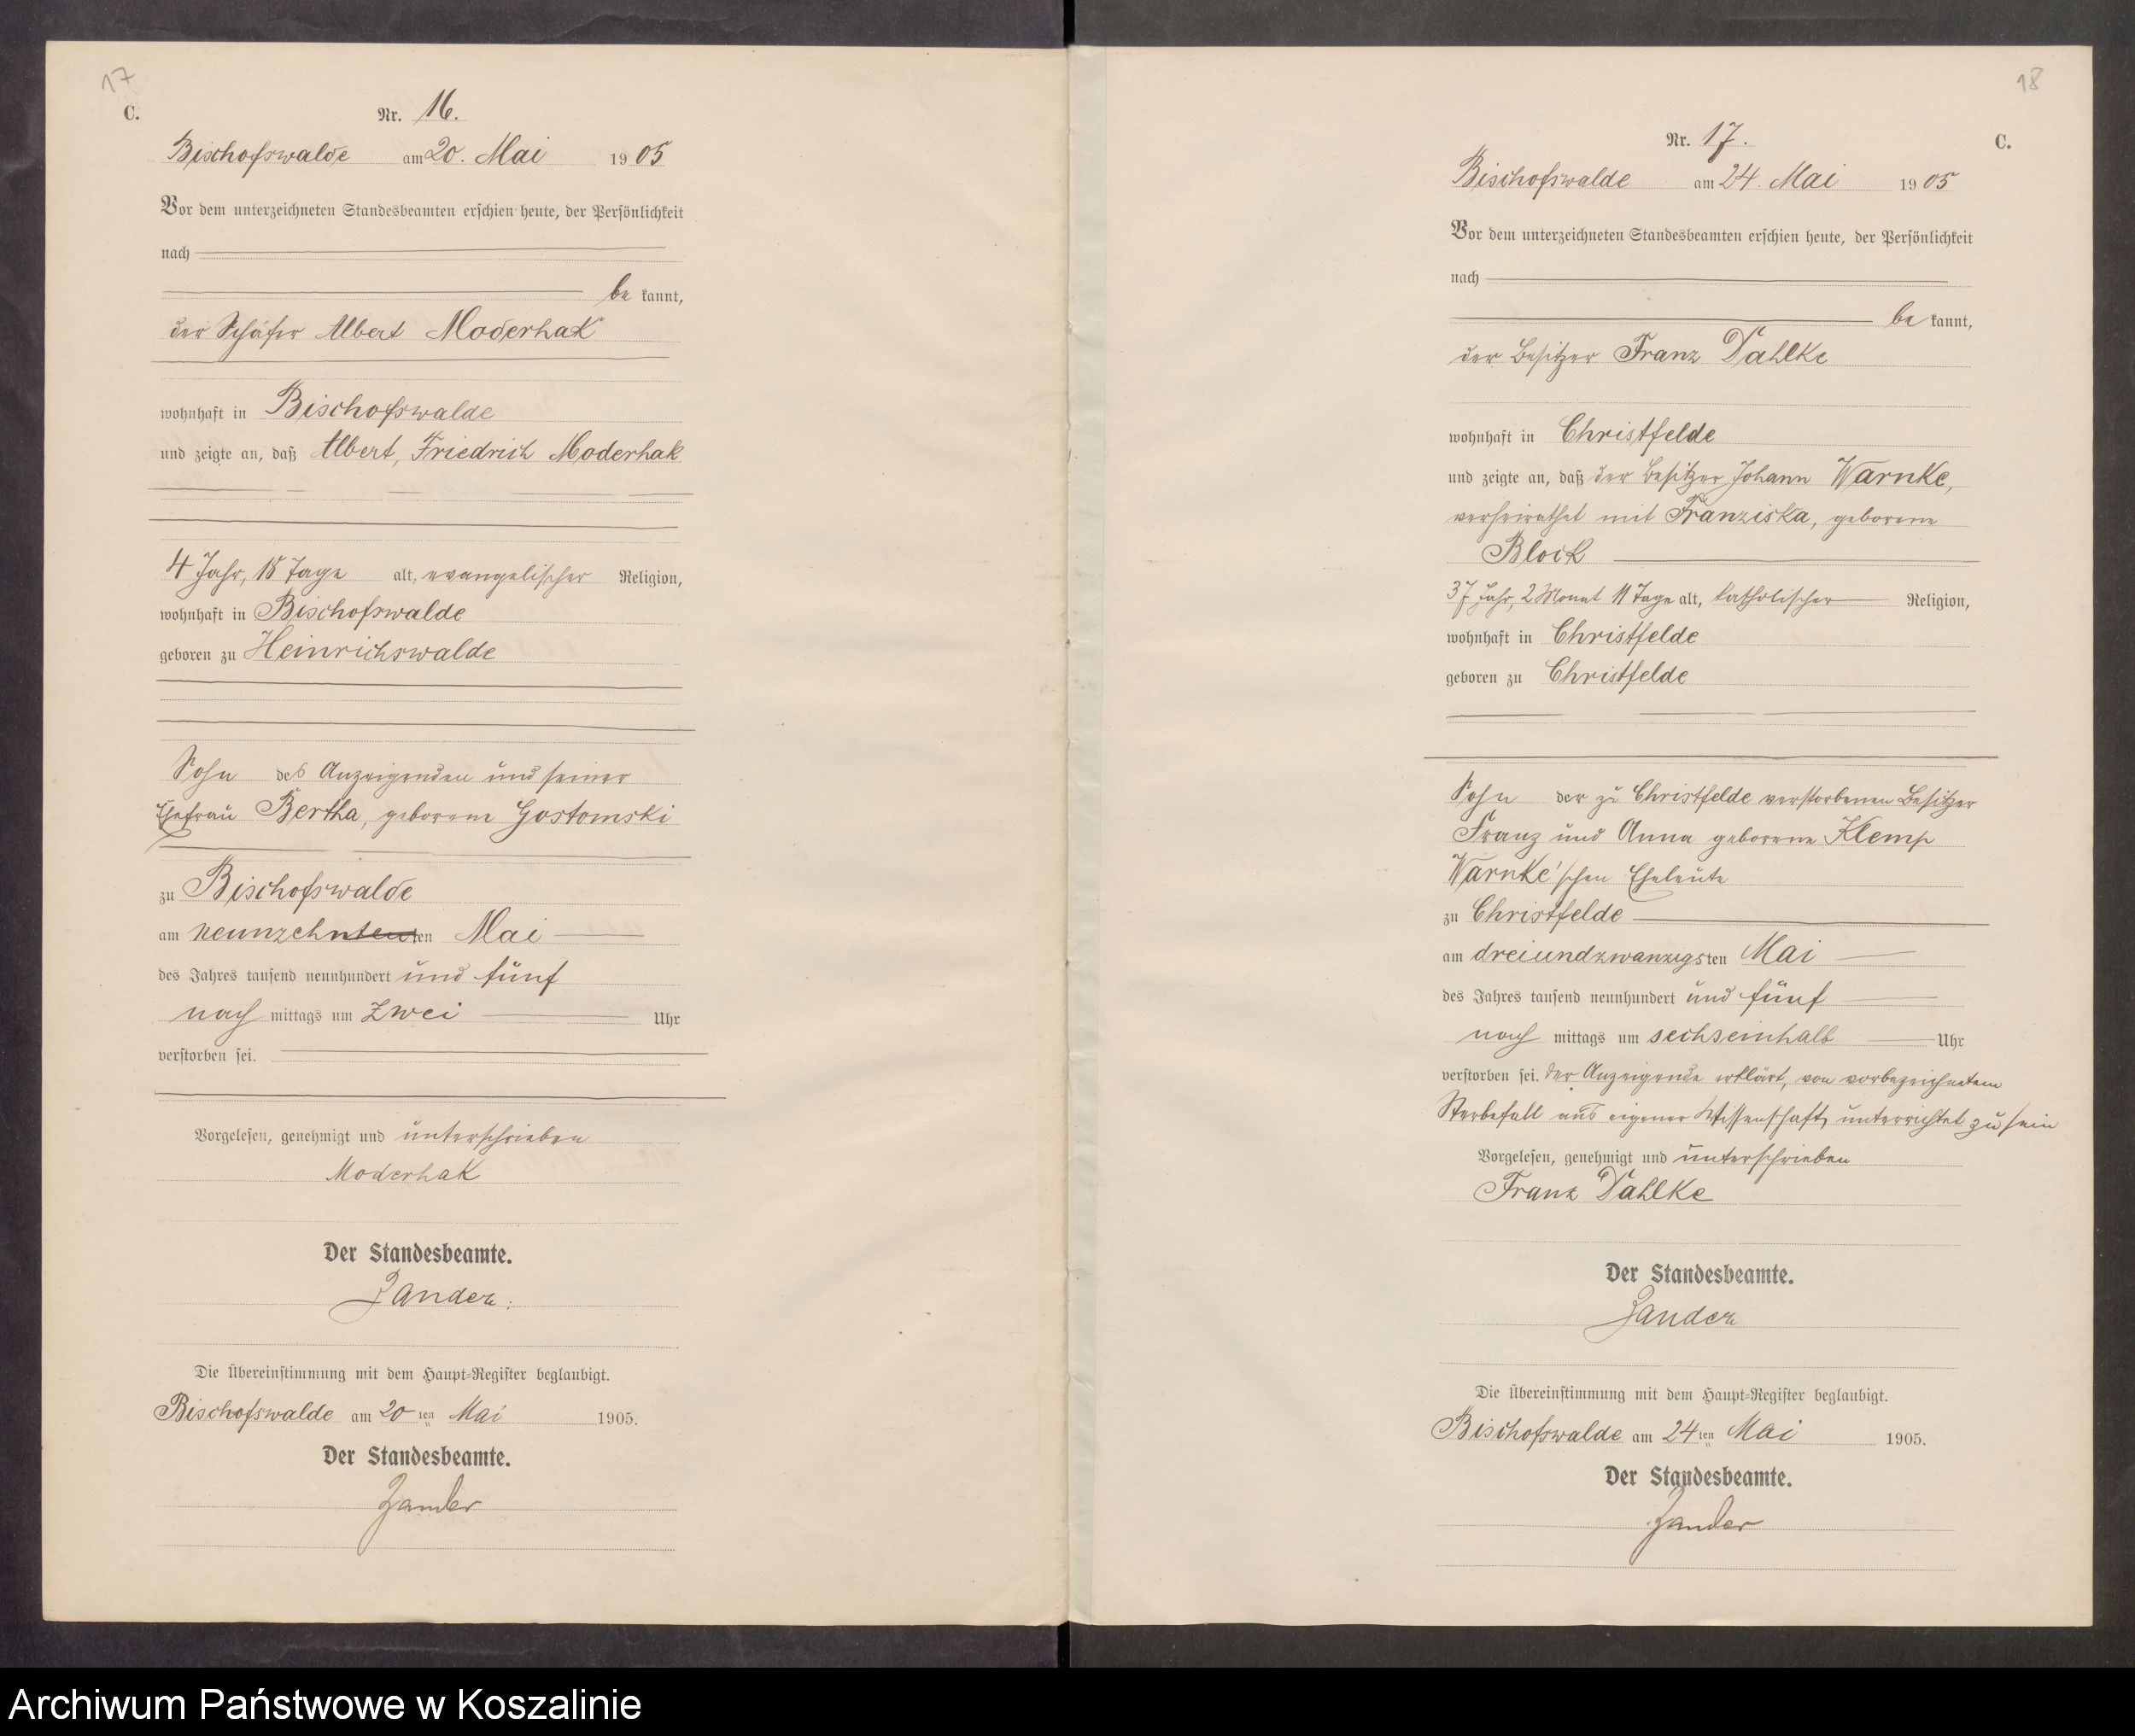 17
C.
Nr. 16.
Bischofswalde am 20. Mai 1905
Vor dem unterzeichneten Standesbeamten erschien heute, der Persönlichkeit
nach
be kannt,
der Schäfer Albert Moderhak
wohnhaft in Bischofswalde
und zeigte an, daß Albert, Friedrich Moderhak
4 Jahr, 18 Tage alt, evangelischer Religion,
wohnhaft in Bischofswalde
geboren zu Heinrichswalde
Sohn des Anzeigenden und seiner
Ehefrau Bertha, geborene Gostomski
zu Bischofswalde
am neunzehntenten Mai
des Jahres tausend neunhundert und fünf
nach mittags um zwei Uhr
verstorben sei.
Vorgelesen, genehmigt und unterschrieben
Moderhak
Der Standesbeamte.
Zander.
Die Übereinstimmung mit dem Haupt-Register beglaubigt.
Bischofswalde am 20ten Mai 1905.
Der Standesbeamte.
Zander
18
Nr. 17. C.
Bischofswalde am 24. Mai 1905
Vor dem unterzeichneten Standesbeamten erschien heute, der Persönlichkeit
nach
be kannt,
der Besitzer Franz Dahlke
wohnhaft in Christfelde
und zeigte an, daß der Besitzer Johann Warnke,
verheirathet mit Franziska, geborene
Block
37 Jahr, 2 Monat 11 Tage alt, katholischer Religion,
wohnhaft in Christfelde
geboren zu Christfelde
Sohn der zu Christfelde verstorbenen Besitzer
Franz und Anna geborene Klemp
Warnke'schen Eheleute
zu Christfelde
am dreiundzwanzigsten Mai
des Jahres tausend neunhundert und fünf
nach mittags um sechseinhalb Uhr
verstorben sei. Der Anzeigende erklärt, von vorbezeichnetem
Sterbefall aus eigener Wissenschaft unterrichtet zu sein
Vorgelesen, genehmigt und unterschrieben
Franz Dahlke
Der Standesbeamte.
Zander
Die Übereinstimmung mit dem Haupt-Register beglaubigt.
Bischofswalde am 24ten Mai 1905.
Der Standesbeamte.
Zander
Archiwum Państwowe w Koszalinie